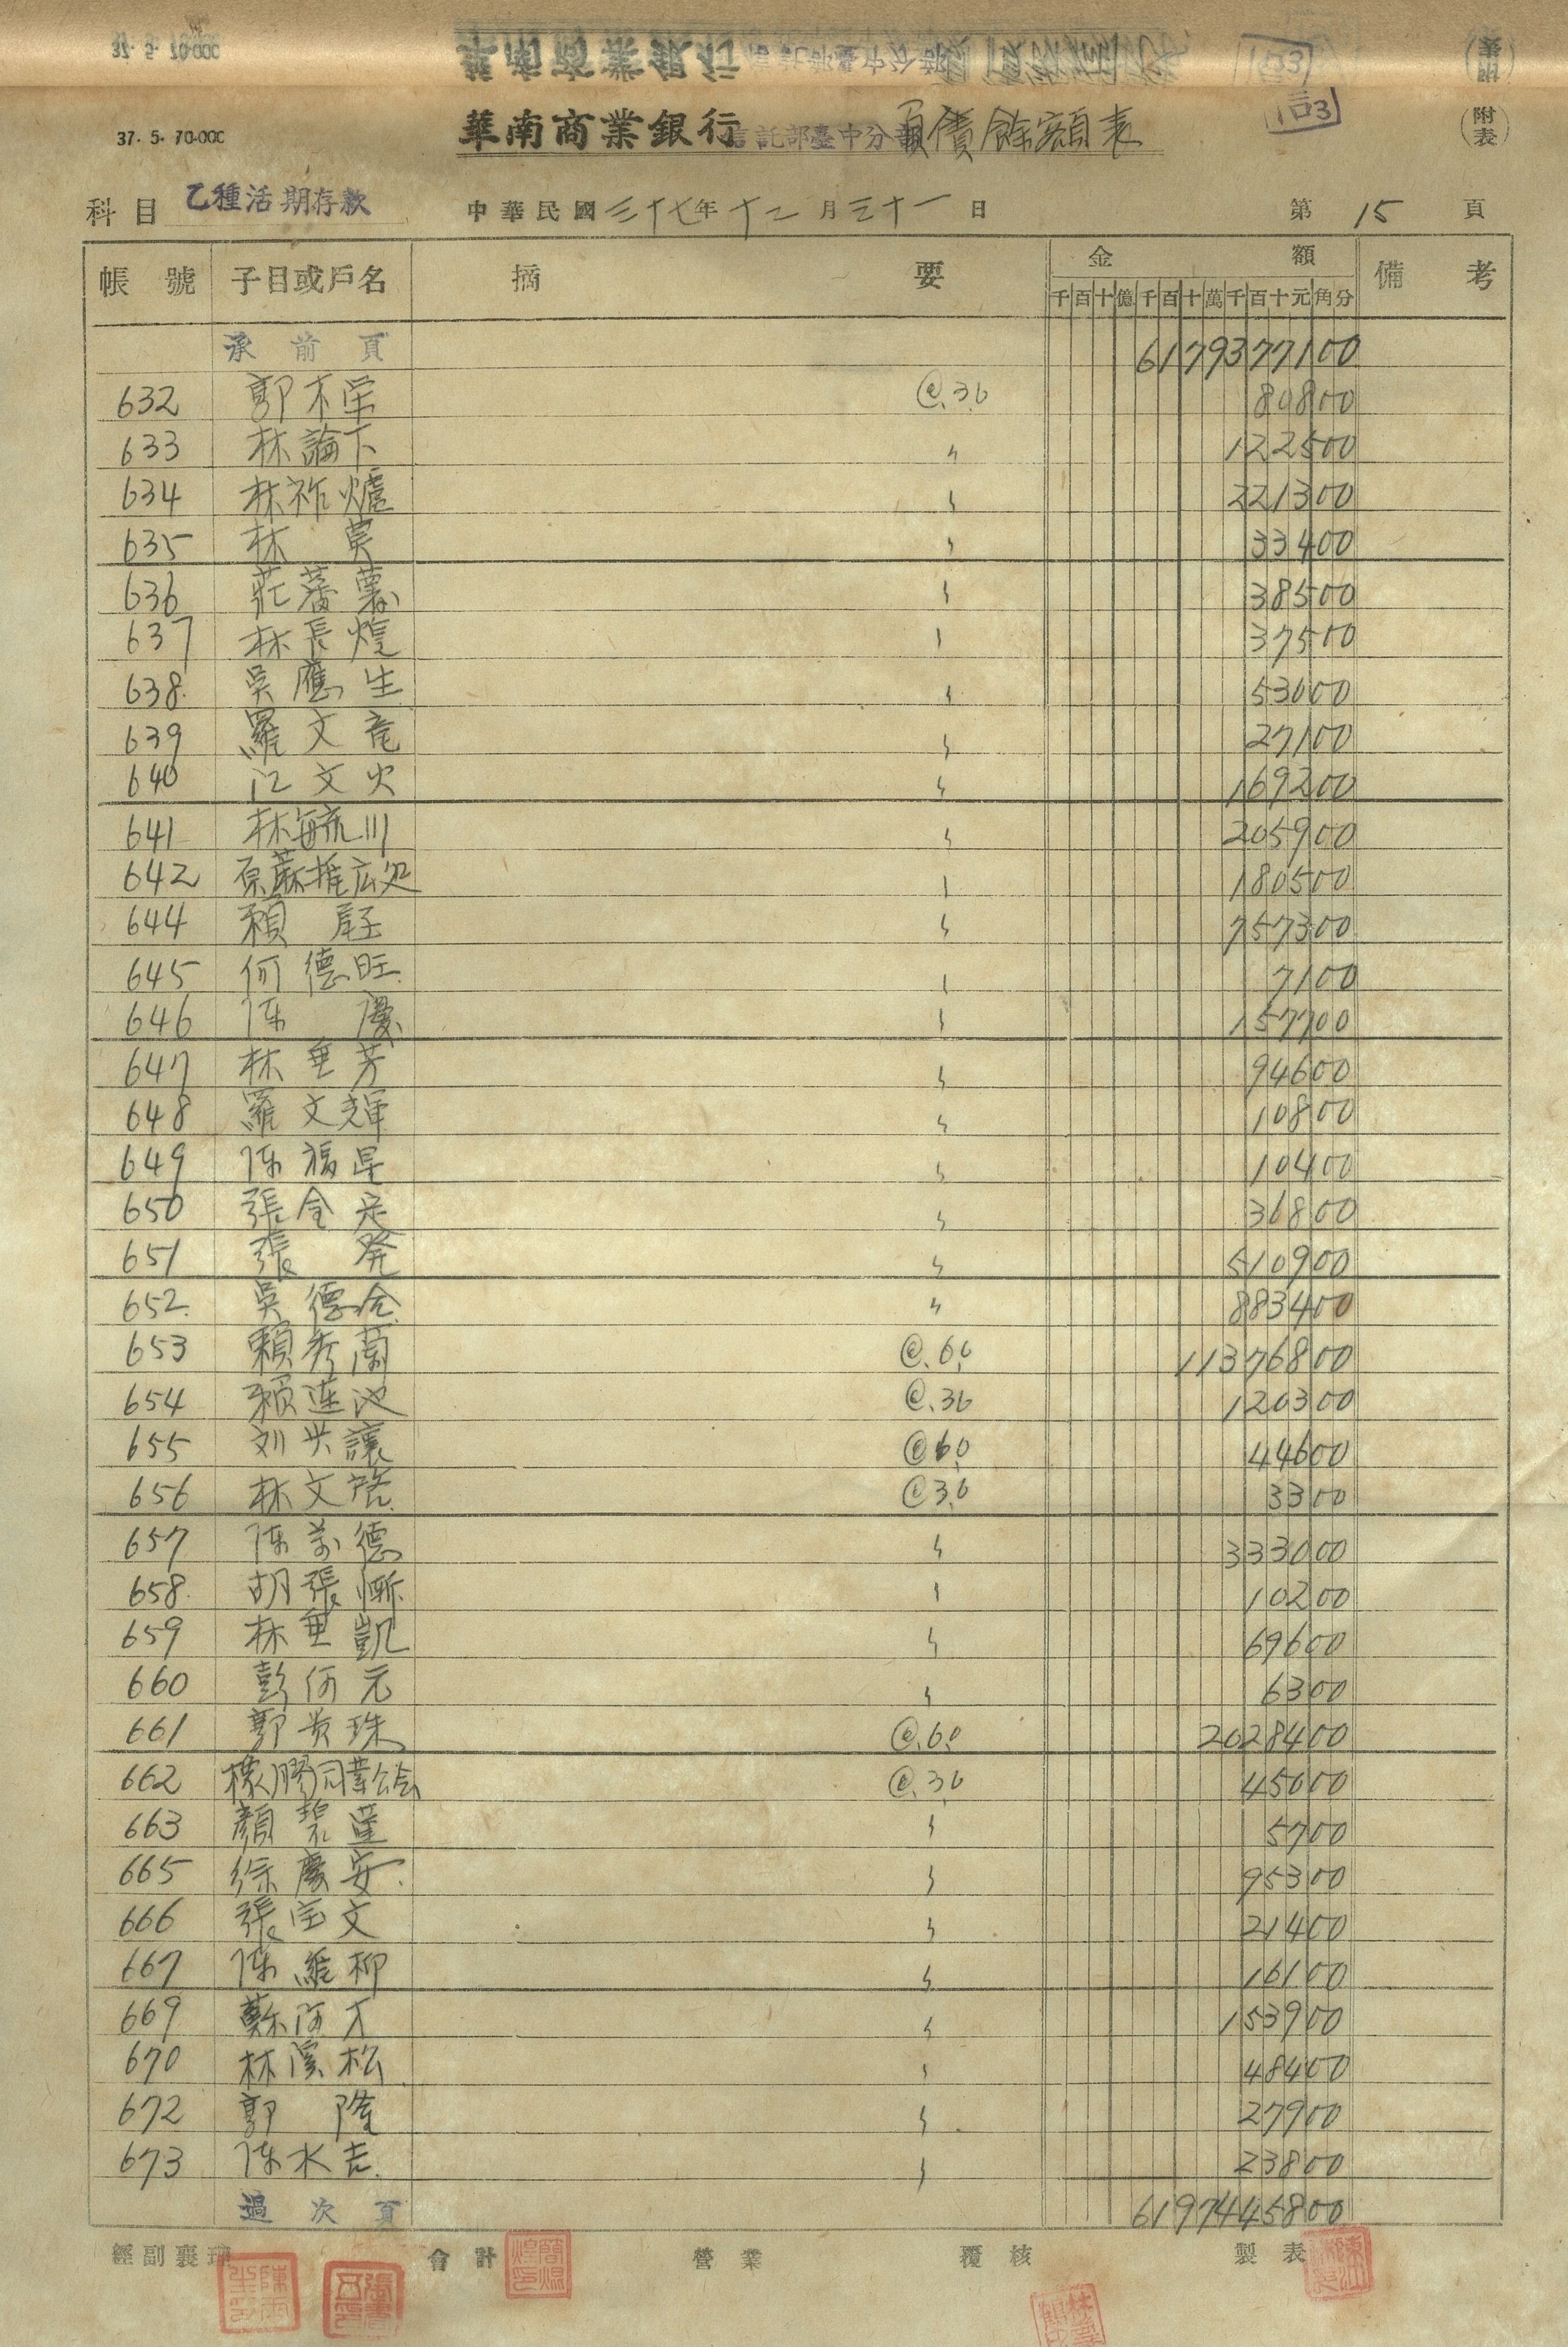 37. 5. 70.000
華南商業銀行信託部臺中分部負債餘額表
附表
科目 乙種活期存款 中華民國三十七年十二月三十一日 第15頁
帳號 子目或戶名 摘要 金額 備考
千百十億千百十萬千百十元角分
承前頁 6179377100
632 郭木荣 @.30 80800
633 林論下 〃 122500
634 林祚爐 〃 221300
635 林 〃 33400
636 莊蕃薯 〃 38500
637 林長煌 〃 37500
638 吳應生 〃 53000
639 羅文竜 〃 27100
640 江文火 〃 169200
641 林毓川 〃 205900
642 蔴推広処 〃 180500
644 賴 〃 757300
645 何德旺 〃 7100
646 陳慶 〃 157700
647 林垂芳 〃 94600
648 羅文輝 〃 10800
649 陳福星 〃 10400
650 張金定 〃 36800
651 張発 〃 510900
652 吳德金 〃 883400
653 賴秀蘭 @.60 11376800
654 賴蓮池 @.30 120300
655 刘兴讓 @60 44600
656 林文 @30 3300
657 陳萬德 〃 333000
658 胡張慚 〃 10200
659 林垂凱 〃 69600
660 彭阿元 〃 6300
661 郭貴珠 @.60 2028400
662 橡膠同業公会 @.30 45000
663 顏碧蓮 〃 5700
665 徐慶安 〃 95300
666 張宝文 〃 21400
667 陳維柳 〃 16100
669 蘇阿才 〃 153900
670 林溪松 〃 48400
672 郭隆 〃 27900
673 陳水吉 〃 23800
過次頁 6197445800
經副襄理 會計 營業 覆核 製表